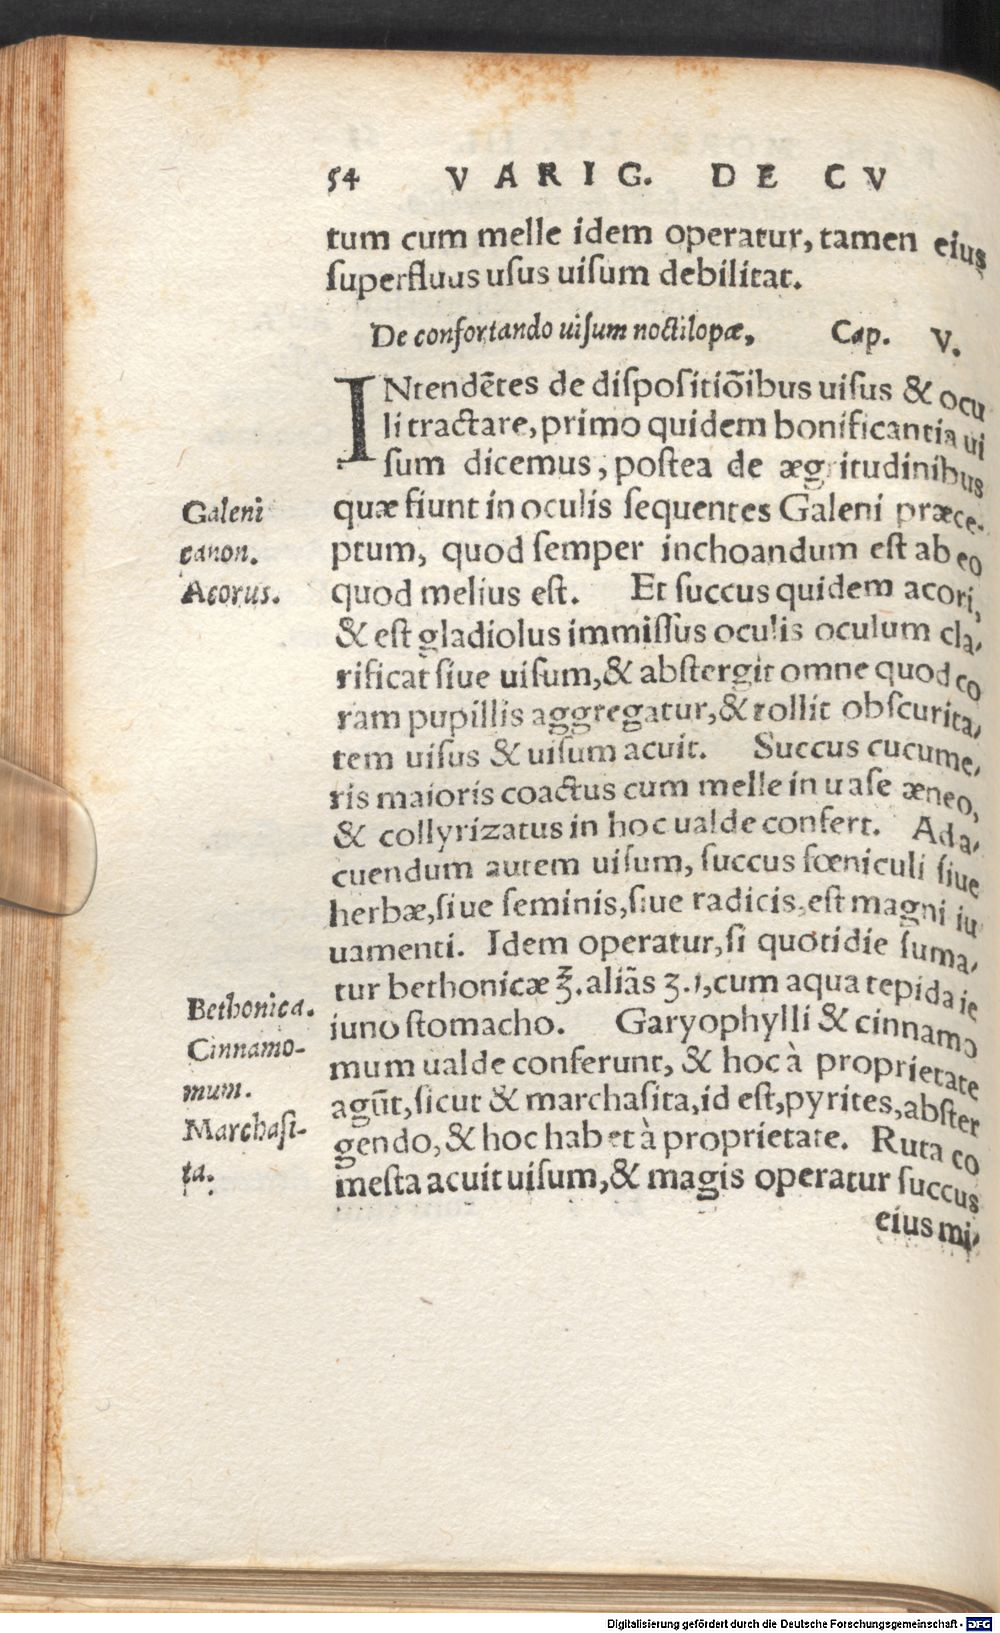 54 VARIG. DE CV
tum cum melle idem operatur, tamen eius
superfluus usus uisum debilitat.
De confortando uisum noctilopæ, Cap. V.
INtendẽtes de dispositiõibus uisus & ocu
li tractare, primo quidem bonificantia ui
sum dicemus, postea de ægritudinibus
Galeni
quæ fiunt in oculis sequentes Galeni præce-
canon.
ptum, quod semper inchoandum est ab eo
Acorus.
quod melius est. Et succus quidem acori,
& est gladiolus immissus oculis oculum cla-
rificat siue uisum, & abstergit omne quod co
ram pupillis aggregatur, & tollit obscurita-
tem uisus & uisum acuit. Succus cucume-
ris maioris coactus cum melle in uase æneo,
& collyrizatus in hoc ualde confert. Ad a-
cuendum autem uisum, succus fœniculi siue
herbæ, siue seminis, siue radicis, est magni iu
uamenti. Idem operatur, si quotidie suma-
tur bethonicæ ℥. aliãs ʒ. 1, cum aqua tepida ie
Bethonica.
iuno stomacho. Garyophylli & cinnamo
Cinnamo-
mum ualde conferunt, & hoc à proprietate
mum.
agũt, sicut & marchasita, id est, pyrites, abster
Marchasi-
gendo, & hoc habet à proprietate. Ruta co
ta.
mesta acuit uisum, & magis operatur succus
eius mi-
Digitalisierung gefördert durch die Deutsche Forschungsgemeinschaft - DFG